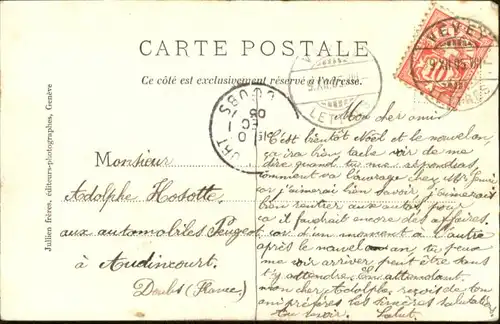 CARTE POSTALE
Ce côté est exclusivement réservé à l'adresse.
Jullien frères, éditeurs-photographes, Genève
VEVEY
LETTRES
DOUBS
Monsieur
Adolphe Hosotte
aux automobiles Peugeot
à Audincourt.
Doubs (France)
Mon cher ami
C'est bientôt Noël et le nouvel an,
ça ira bien, tache voir de me
dire quand tu me
comment va l'ouvrage chez Mr
car j'aimerai bien savoir, j'aimerai
bien rentrer aux autos, pour
ça il faudrait encore des affaires.
car d'un moment à l'autre
après le nouvel an, tu peux
me voir arriver peut être sans
t'y attendre. En attendant
mon cher Adolphe, reçois de ton
ami les sincères salutations
Au revoir. Salut.